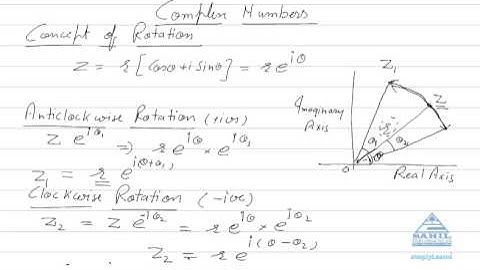 Complex Numbers
Concept of Rotation
Z = r [Cosθ + i Sinθ] = r e^{iθ}
Anticlockwise Rotation (+ive)
Z e^{iθ₁} ⇒ r e^{iθ} × e^{iθ₁}
Z₁ = r e^{i(θ+θ₁)}
Clockwise Rotation (-ive)
Z₂ = Z e^{-iθ₂} = r e^{iθ} × e^{iθ₂}
Z₂ = r e^{i(θ-θ₂)}
Z₁
Z
Imaginary
Axis
θ₁
θ₂
O
Real Axis
SAHIL